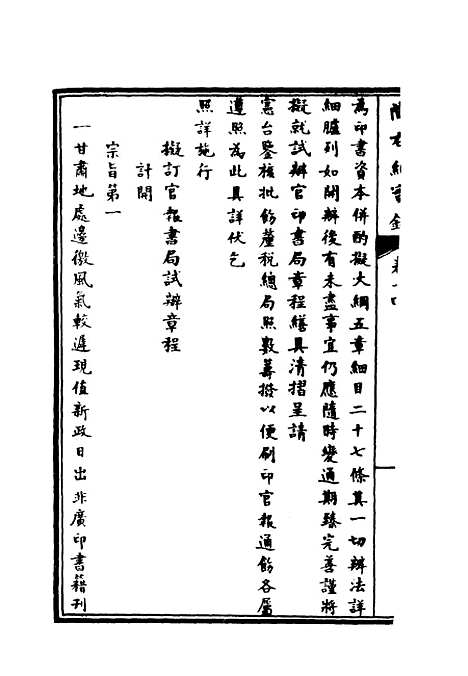 隴右紀實錄 卷十四
為印書資本併酌擬大綱五章細目二十七條其一切辦法詳
細臚列如開辦後有未盡事宜仍應隨時變通期臻完善謹將
擬就試辦官印書局章程繕具清摺呈請
憲台鑒核批飭釐稅總局照數籌撥以便刷印官報通飭各屬
遵照為此具詳伏乞
照詳施行
擬訂官報書局試辦章程
計開
宗旨第一
一甘肅地處邊徼風氣較遲現值新政日出非廣印書籍刊